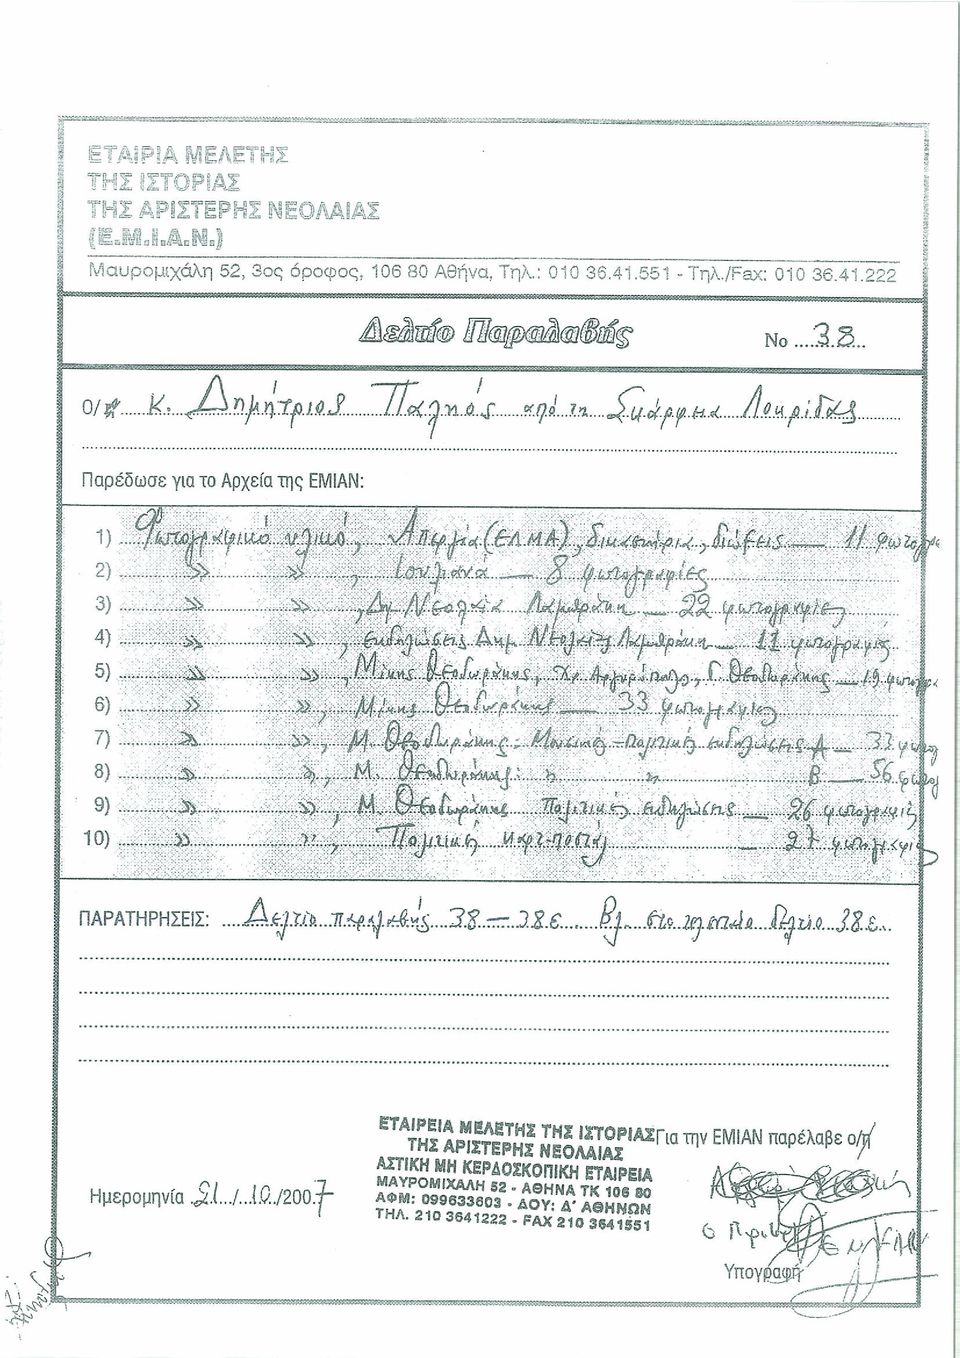 ΕΤΑΙΡΙΑ ΜΕΛΕΤΗΣ
ΤΗΣ ΙΣΤΟΡΙΑΣ
ΤΗΣ ΑΡΙΣΤΕΡΗΣ ΝΕΟΛΑΙΑΣ
(Ε.Μ.Ι.Α.Ν.)
Μαυρομιχάλη 52, 3ος όροφος, 106 80 Αθήνα, Τηλ.: 010 36.41.551 - Τηλ./Fax: 010 36.41.222
Δελτίο Παραλαβής Νο ....38..
Ο/η κ. Δημήτριος Παληός από τη Σκάρφεια Λοκρίδας
Παρέδωσε για το Αρχεία της ΕΜΙΑΝ:
1) Φωτογραφικό υλικό, Απεργία (ΕΛΜΑ), δικαστήρια, διώξεις — 11 φωτογρα
2) » » , Ιουλιανά — 8 φωτογραφίες
3) » » , Δη. Νεολαία Λαμπράκη — 22 φωτογραφίες
4) » » , εκδηλώσεις Δημ. Νεολαίας Λαμπράκη — 11 φωτογραφίες
5) » » , Μίκης Θεοδωράκης, Χρ. Αργυρόπουλο, Γ. Θεοδωράκης — 19 φωτογρα
6) » » , Μίκης Θεοδωράκης — 33 φωτογραφίες
7) » » , Μ. Θεοδωράκης: Μουσικές-Πολιτικές εκδηλώσεις Α — 33 φωτογ
8) » » , Μ. Θεοδωράκης: » » Β — 56 φωτογ
9) » » , Μ. Θεοδωράκης Πολιτικές εκδηλώσεις — 26 φωτογραφίες
10) » » , Πολιτικές καρτ-ποστάλ — 27 φωτογραφίες
ΠΑΡΑΤΗΡΗΣΕΙΣ: Δελτίο παραλαβής 38 — 38ε. Βλ. στο τελευταίο δελτίο 38ε.
ΕΤΑΙΡΕΙΑ ΜΕΛΕΤΗΣ ΤΗΣ ΙΣΤΟΡΙΑΣ Για την ΕΜΙΑΝ παρέλαβε ο/η
ΤΗΣ ΑΡΙΣΤΕΡΗΣ ΝΕΟΛΑΙΑΣ
ΑΣΤΙΚΗ ΜΗ ΚΕΡΔΟΣΚΟΠΙΚΗ ΕΤΑΙΡΕΙΑ
ΜΑΥΡΟΜΙΧΑΛΗ 52 - ΑΘΗΝΑ ΤΚ 106 80
ΑΦΜ: 099633603 - ΔΟΥ: Δ' ΑΘΗΝΩΝ
ΤΗΛ. 210 3641222 - FAX 210 3641551
Ημερομηνία 21/10/2007
Υπογραφή